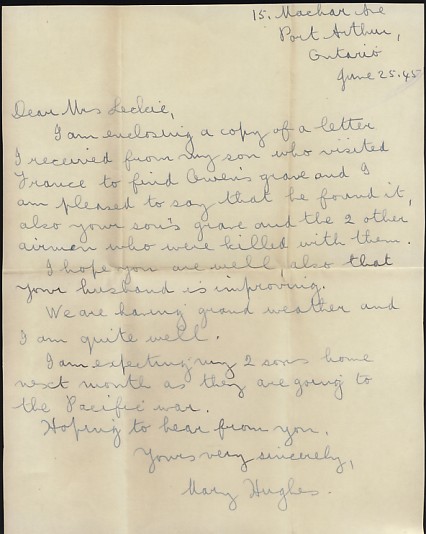 15, Machar Ave
Port Arthur,
Ontario
June 25.45
Dear Mrs Leckie,
I am enclosing a copy of a letter
I received from my son who visited
France to find Owen's grave and I
am pleased to say that he found it,
also your son's grave and the 2 other
airmen who were killed with them.
I hope you are well, also that
your husband is improving.
We are having grand weather and
I am quite well.
I am expecting my 2 sons home
next month as they are going to
the Pacific war.
Hoping to hear from you.
Yours very sincerely,
Mary Hughes.